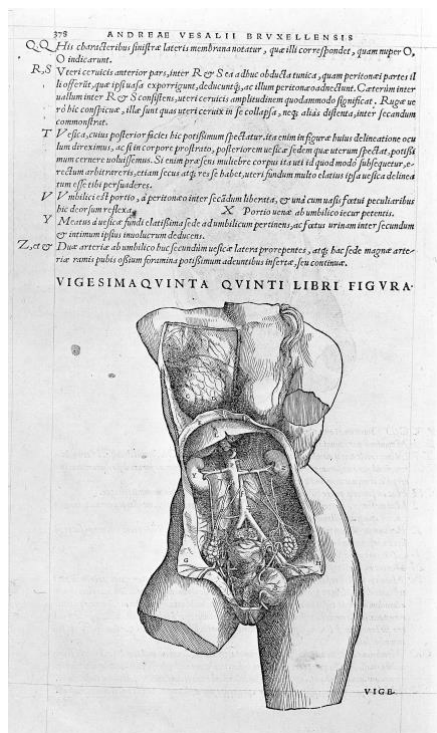 378 ANDREAE VESALII BRVXELLENSIS
Q, Q His characteribus sinistræ lateris membrana notatur, quæ illi correspondet, quam nuper O,
O indicarunt.
R, S Vteri ceruicis anterior pars, inter R & S ea adhuc obducta tunica, quam peritonæi partes il
li offerūt, quæ ipsi uasa exporrigunt, deducuntq́;, ac illum peritonæo adnectunt. Cæterùm inter
uallum inter R & S consistens, uteri ceruicis amplitudinem quodammodo significat. Rugæ ue
rò hic conspicuæ, illæ sunt quas uteri ceruix in se collapsa, neq; aliàs distenta, inter secandum
commonstrat.
T Vesica, cuius posterior facies hic potissimùm spectatur. ita enim in figuræ huius delineatione ocu
lum direximus, ac si in corpore prostrato, posteriorem uesicæ sedem quæ uterum spectat, potissi
mùm cernere uoluissemus. Si enim præsens muliebre corpus ita uti id quodmodò subsequetur, e-
rectum arbitraréris, etiam secus atq; res se habet, uteri fundum multo elatius ipsa uesica delinea
tum esse tibi persuaderes.
V Vmbilici est portio, à peritonæo inter secādum liberata, & unà cum uasis fœtui peculiaribus
hic deorsum reflexa. X Portio uenæ ab umbilico iecur petentis.
Y Meatus à uesicæ fundi elatissima sede ad umbilicum pertinens, ac fœtus urinam inter secundum
& intimum ipsius inuolucrum deducens.
Z, et & Duæ arteriæ ab umbilico huc secundùm uesicæ latera prorepentes, atq; hac sede magnæ arte-
riæ ramis pubis ossium foramina potissimùm adeuntibus insertæ, seu continuæ.
VIGESIMAQVINTA QVINTI LIBRI FIGVRA.
G H
VIGE-